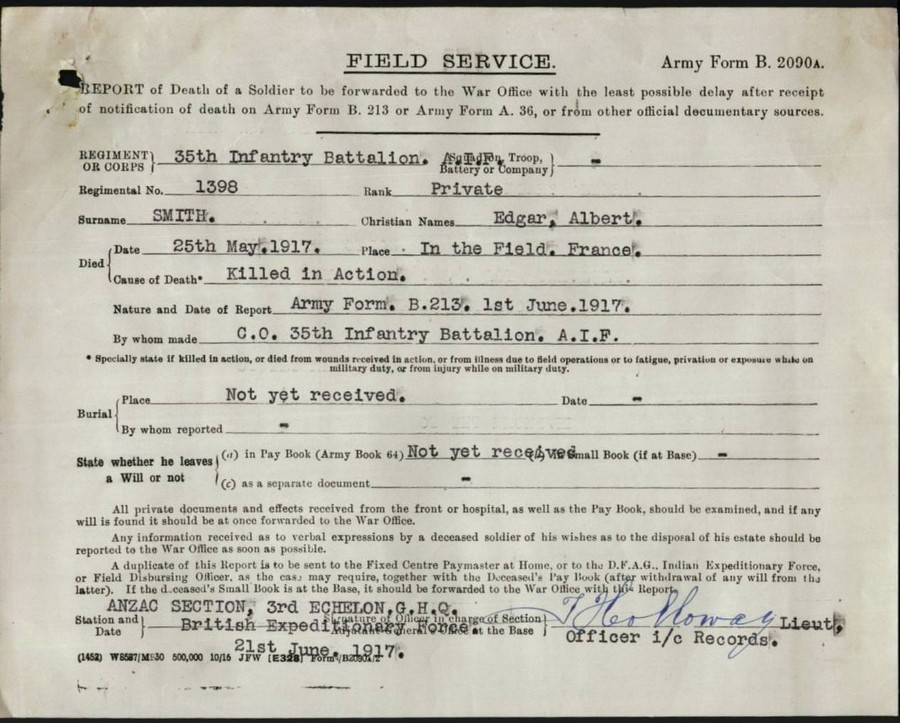 FIELD SERVICE. Army Form B. 2090A.
REPORT of Death of a Soldier to be forwarded to the War Office with the least possible delay after receipt
of notification of death on Army Form B. 213 or Army Form A. 36, or from other official documentary sources.
REGIMENT OR CORPS } 35th Infantry Battalion. A.I.F. Squadron, Troop, Battery or Company } -
Regimental No. 1398 Rank Private
Surname SMITH. Christian Names Edgar, Albert.
Died { Date 25th May.1917. Place In the Field. France.
Cause of Death* Killed in Action.
Nature and Date of Report Army Form. B.213. 1st June.1917.
By whom made C.O. 35th Infantry Battalion. A.I.F.
* Specially state if killed in action, or died from wounds received in action, or from illness due to field operations or to fatigue, privation or exposure while on
military duty, or from injury while on military duty.
Burial { Place Not yet received. Date -
By whom reported -
State whether he leaves a Will or not { (a) in Pay Book (Army Book 64) Not yet received (b) in Small Book (if at Base) -
(c) as a separate document -
All private documents and effects received from the front or hospital, as well as the Pay Book, should be examined, and if any
will is found it should be at once forwarded to the War Office.
Any information received as to verbal expressions by a deceased soldier of his wishes as to the disposal of his estate should be
reported to the War Office as soon as possible.
A duplicate of this Report is to be sent to the Fixed Centre Paymaster at Home, or to the D.F.A.G., Indian Expeditionary Force,
or Field Disbursing Officer, as the case may require, together with the Deceased's Pay Book (after withdrawal of any will from the
latter). If the deceased's Small Book is at the Base, it should be forwarded to the War Office with this Report.
ANZAC SECTION, 3rd ECHELON.G.H.Q.
Station and Date } British Expeditionary Force. Signature of Officer in charge of Section Adjutant-General's Office at the Base } T Holloway Lieut.
Officer i/c Records.
21st June. 1917.
(1452) W8587/M930 500,000 10/16 JFW [E328] Form/B2090A/2